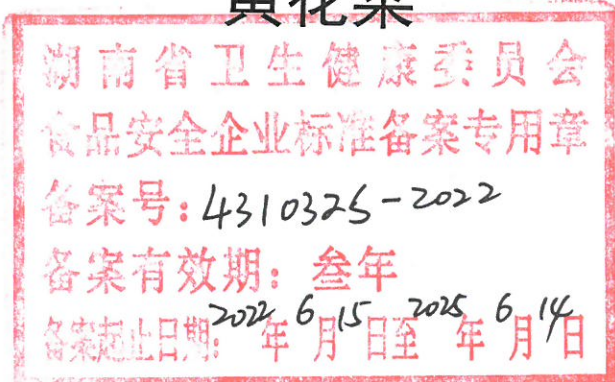 黄花菜
湖南省卫生健康委员会
食品安全企业标准备案专用章
备案号:4310325-2022
备案有效期:叁年
备案起止日期:2022年6月15日至2025年6月14日